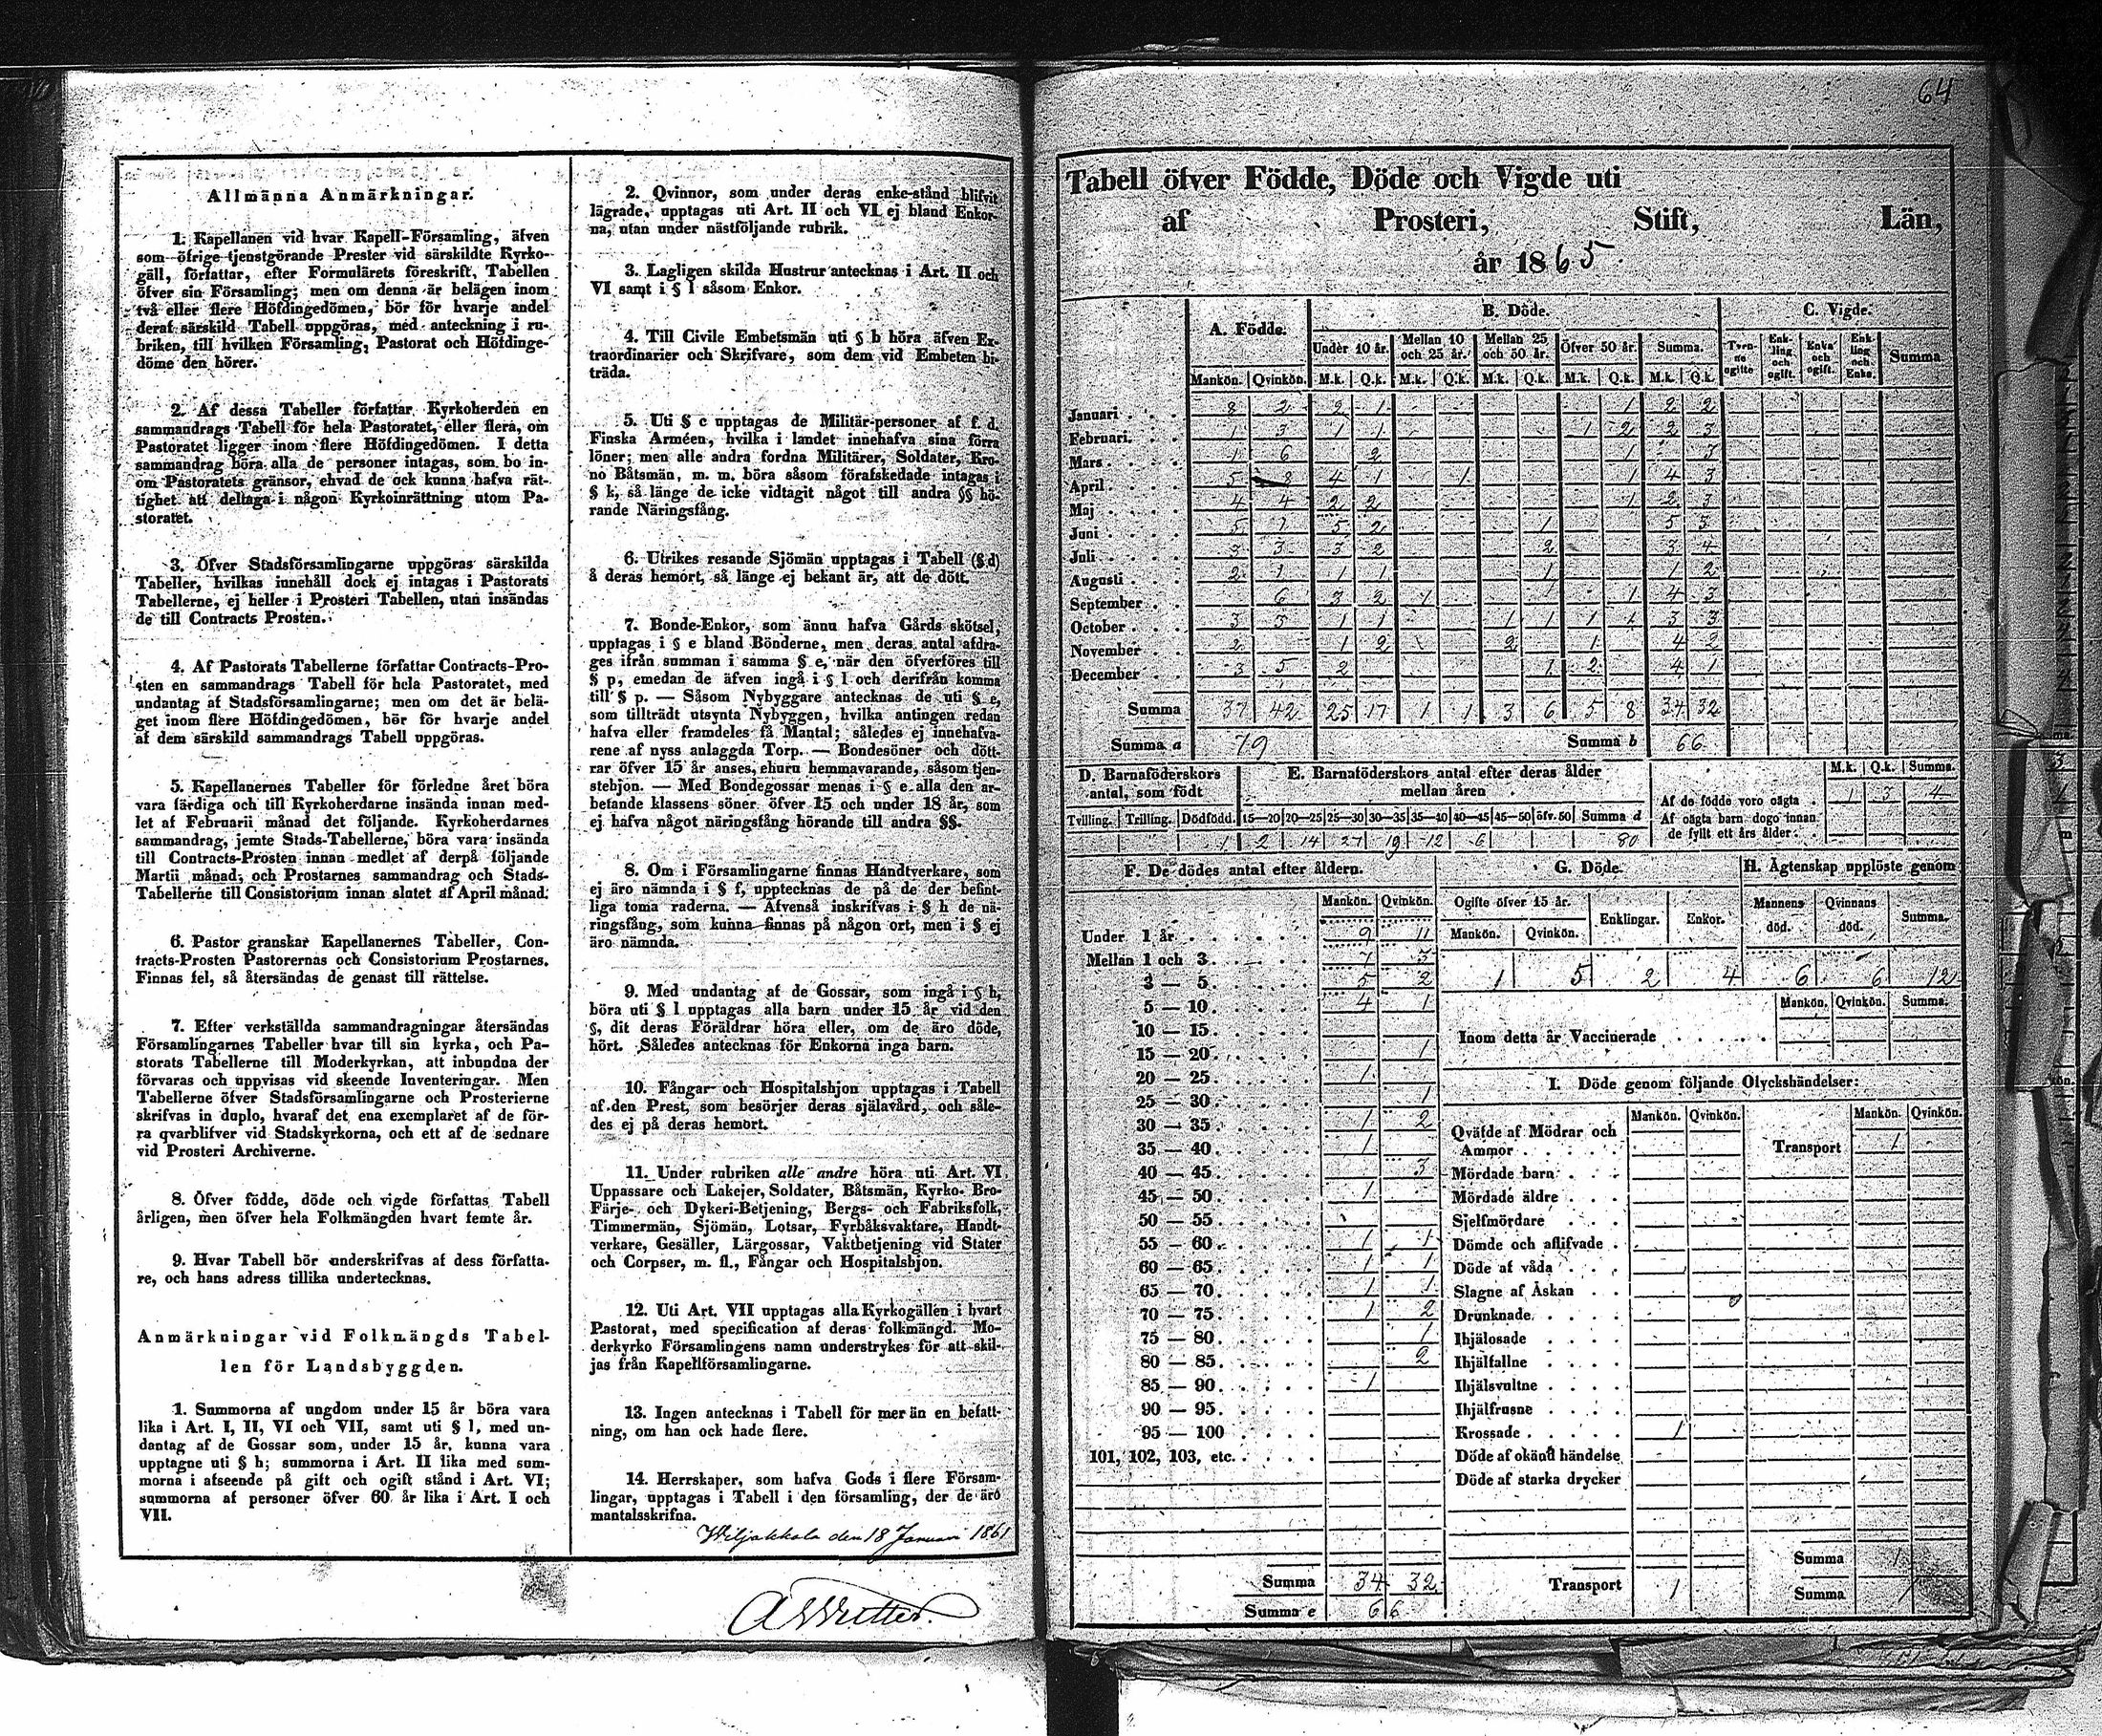 64
Allmänna Anmärkningar.
1. Kapellanen vid hvar Kapell-Församling, äfven
som öfrige tjenstgörande Prester vid särskildte Kyrko-
gäll, författar, efter Formulärets föreskrift, Tabellen
öfver sin Församling; men om denna är belägen inom
två eller flere Höfdingedömen, bör för hvarje andel
deraf särskild Tabell uppgöras, med anteckning i ru-
briken, till hvilken Församling, Pastorat och Höfdinge-
döme den hörer.
2. Af dessa Tabeller författar Kyrkoherden en
sammandrags Tabell för hela Pastoratet, eller flera, om
Pastoratet ligger inom flere Höfdingedömen. I detta
sammandrag böra alla de personer intagas, som bo in-
om Pastoratets gränsor, ehvad de ock kunna hafva rät-
tighet att deltaga i någon Kyrkoinrättning utom Pa-
storatet.
3. Öfver Stadsförsamlingarne uppgöras särskilda
Tabeller, hvilkas innehåll dock ej intagas i Pastorats
Tabellerne, ej heller i Prosteri Tabellen, utan insändas
de till Contracts Prosten.
4. Af Pastorats Tabellerne författar Contracts-Pro-
sten en sammandrags Tabell för hela Pastoratet, med
undantag af Stadsförsamlingarne; men om det är belä-
get inom flere Höfdingedömen, bör för hvarje andel
af dem särskild sammandrags Tabell uppgöras.
5. Kapellanernes Tabeller för förledne året böra
vara färdiga och till Kyrkoherdarne insända innan med-
let af Februarii månad det följande. Kyrkoherdarnes
sammandrag, jemte Stads-Tabellerne, böra vara insända
till Contracts-Prosten innan medlet af derpå följande
Martii månad; och Prostarnes sammandrag och Stads-
Tabellerne till Consistorium innan slutet af April månad.
6. Pastor granskar Kapellanernes Tabeller, Con-
tracts-Prosten Pastorernas och Consistorium Prostarnes.
Finnas fel, så återsändas de genast till rättelse.
7. Efter verkställda sammandragningar återsändas
Församlingarnes Tabeller hvar till sin kyrka, och Pa-
storats Tabellerne till Moderkyrkan, att inbundna der
förvaras och uppvisas vid skeende Inventeringar. Men
Tabellerne öfver Stadsförsamlingarne och Prosterierne
skrifvas in duplo, hvaraf det ena exemplaret af de för-
ra qvarblifver vid Stadskyrkorna, och ett af de sednare
vid Prosteri Archiverne.
8. Öfver födde, döde och vigde författas Tabell
årligen, men öfver hela Folkmängden hvart femte år.
9. Hvar Tabell bör underskrifvas af dess författa-
re, och hans adress tillika undertecknas.
Anmärkningar vid Folkmängds Tabel-
len för Landsbyggden.
1. Summorna af ungdom under 15 år böra vara
lika i Art. I, II, VI och VII, samt uti § l, med un-
dantag af de Gossar som, under 15 år, kunna vara
upptagne uti § h; summorna i Art. II lika med sum-
morna i afseende på gift och ogift stånd i Art. VI;
summorna af personer öfver 60 år lika i Art. I och
VII.
2. Qvinnor, som under deras enke-stånd blifvit
lägrade, upptagas uti Art. II och VI ej bland Enkor-
na, utan under nästföljande rubrik.
3. Lagligen skilda Hustrur antecknas i Art. II och
VI samt i § l såsom Enkor.
4. Till Civile Embetsmän uti § b höra äfven Ex-
traordinarier och Skrifvare, som dem vid Embeten bi-
träda.
5. Uti § c upptagas de Militär-personer af f. d.
Finska Arméen, hvilka i landet innehafva sina förra
löner; men alle andra fordna Militärer, Soldater, Kro-
no Båtsmän, m. m. böra såsom förafskedade intagas i
§ k, så länge de icke vidtagit något till andra §§ hö-
rande Näringsfång.
6. Utrikes resande Sjömän upptagas i Tabell (§ d)
å deras hemort, så länge ej bekant är, att de dött.
7. Bonde-Enkor, som ännu hafva Gårds skötsel,
upptagas i § e bland Bönderne, men deras antal afdra-
ges ifrån summan i samma § e, när den öfverföres till
§ p, emedan de äfven ingå i § l och derifrån komma
till § p. — Såsom Nybyggare antecknas de uti § e,
som tillträdt utsynta Nybyggen, hvilka antingen redan
hafva eller framdeles få Mantal; således ej innehafva-
rene af nyss anlaggda Torp. — Bondesöner och dött-
rar öfver 15 år anses, ehuru hemmavarande, såsom tjen-
stehjon. — Med Bondegossar menas i § e alla den ar-
betande klassens söner öfver 15 och under 18 år, som
ej hafva något näringsfång hörande till andra §§.
8. Om i Församlingarne finnas Handtverkare, som
ej äro nämnda i § f, upptecknas de på de der befint-
liga toma raderna. — Äfvenså inskrifvas i § h de nä-
ringsfång, som kunna finnas på någon ort, men i § ej
äro nämnda.
9. Med undantag af de Gossar, som ingå i § h,
böra uti § l upptagas alla barn under 15 år vid den
§, dit deras Föräldrar höra eller, om de äro döde,
hört. Således antecknas för Enkorna inga barn.
10. Fångar och Hospitalshjon upptagas i Tabell
af den Prest, som besörjer deras själavård, och såle-
des ej på deras hemort.
11. Under rubriken alle andre höra uti Art. VI
Uppassare och Lakejer, Soldater, Båtsmän, Kyrko- Bro-
Färje- och Dykeri-Betjening, Bergs- och Fabriksfolk,
Timmermän, Sjömän, Lotsar, Fyrbåksvaktare, Handt-
verkare, Gesäller, Lärgossar, Vaktbetjening vid Stater
och Corpser, m. fl., Fångar och Hospitalshjon.
12. Uti Art. VII upptagas alla Kyrkogällen i hvart
Pastorat, med specification af deras folkmängd. Mo-
derkyrko Församlingens namn understrykes för att skil-
jas från Kapellförsamlingarne.
13. Ingen antecknas i Tabell för mer än en befatt-
ning, om han ock hade flere.
14. Herrskaper, som hafva Gods i flere Försam-
lingar, upptagas i Tabell i den församling, der de äro
mantalsskrifna.
Wiljakkala den 18 Januari 1861
Tabell öfver Födde, Döde och Vigde uti
af Prosteri, Stift, Län,
år 1865.
A. Födde. B. Döde. C. Vigde.
Under 10 år. Mellan 10 och 25 år. Mellan 25 och 50 år. Öfver 50 år. Summa. Tvenne ogifte Enkling och ogift. Enka och ogift. Enkling och Enka. Summa
Mankön. Qvinkön. M.k. Q.k. M.k. Q.k. M.k. Q.k. M.k. Q.k. M.k. Q.k.
Januari 8 2 2 1 1 2 2
Februari. 1 3 1 1 1 2 2 3
Mars 1 6 2 1 3
April 5 4 1 1 1 4 3
Maj 4 4 2 2 1 2 3
Juni 5 1 5 2 1 5 3
Juli 3 3 3 2 2 3 4
Augusti 2 1 1 1 1 1 2
September 6 3 2 1 1 4 3
October 3 5 1 1 1 1 1 1 3 3
November 2 1 2 2 1 4 2
December 3 5 2 1 2 4 1
Summa 37 42 25 17 1 1 3 6 5 8 34 32
Summa a 79 Summa b 66
D. Barnaföderskors antal, som födt
E. Barnaföderskors antal efter deras ålder mellan åren
M.k. Q.k. Summa.
Af de födde voro oägta 1 3 4
Af oägta barn dogo innan de fyllt ett års ålder
Tvilling. Trilling. Dödfödd. 15—20 20—25 25—30 30—35 35—40 40—45 45—50 öfv. 50 Summa d
1 2 14 27 19 12 6 80
F. De dödes antal efter åldern.
Mankön. Qvinkön.
Under 1 år 9 11
Mellan 1 och 3 7 3
3 — 5 5 2
5 — 10 4 1
10 — 15
15 — 20 1
20 — 25 1
25 — 30 1
30 — 35 1 2
35 — 40 1
40 — 45 3
45 — 50 1
50 — 55
55 — 60 1 1
60 — 65 1 1
65 — 70 1 1
70 — 75 1 2
75 — 80 1
80 — 85 2
85 — 90 1
90 — 95
95 — 100
101, 102, 103, etc.
Summa 34 32
Summa e 66
G. Döde.
Ogifte öfver 15 år. Enklingar. Enkor.
Mankön. Qvinkön.
1 5 2 4
H. Ägtenskap upplöste genom
Mannens död. Qvinnans död. Summa.
6 6 12
Mankön. Qvinkön. Summa.
Inom detta år Vaccinerade
I. Döde genom följande Olyckshändelser:
Mankön. Qvinkön. Mankön. Qvinkön.
Qväfde af Mödrar och Ammor Transport 1
Mördade barn
Mördade äldre
Sjelfmördare
Dömde och aflifvade
Döde af våda
Slagne af Åskan
Drunknade
Ihjälosade
Ihjälfallne
Ihjälsvultne
Ihjälfrusne
Krossade 1
Döde af okänd händelse
Döde af starka drycker
Summa 1
Transport 1 Summa 1